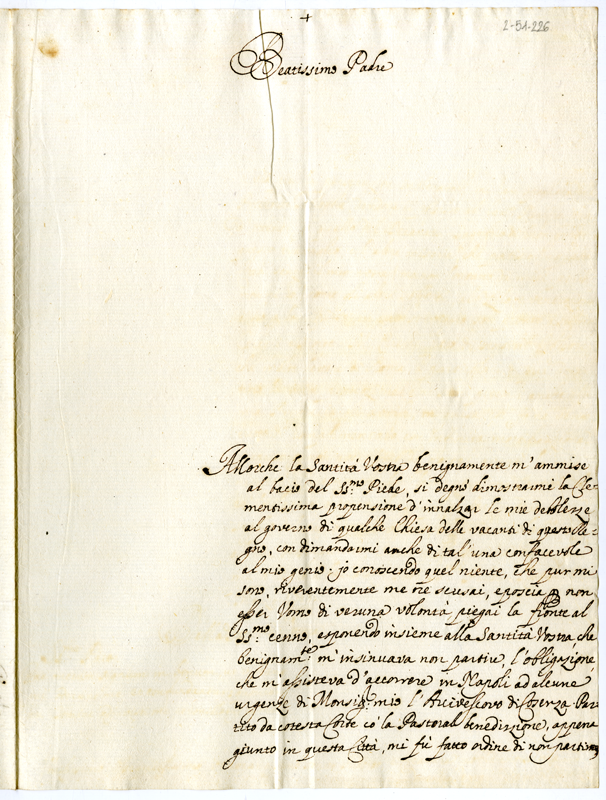 +
2-51-226
Beatissimo Padre
Allorche la Santità Vostra benignamente m'ammise
al bacio del SS.mo Piede, si degnò dimostrarmi la Cle-
mentissima propensione d'innalzar le mie debolezze
al governo di qualche Chiesa delle vacanti di questo Re-
gno, con dimandarmi anche di tal'una confacevole
al mio genio: jo conoscendo quel niente, che pur mi
sono, riverentemente me ne scusai, e poscia p non
esser Uomo di veruna volontà piegai la fronte al
SS.mo cenno, esponendo insieme alla Santità Vostra che
benignam.te m'insinuava non partire, l'obligazione,
che m'assisteva d'accorrere in Napoli ad alcune
urgenze di Monsig.r mio l'Arcivescovo di Cosenza. Par-
tito da cotesta Corte co' la Pastoral benedizzione, appena
giunto in questa Città, mi fù fatto ordine di non partirmi